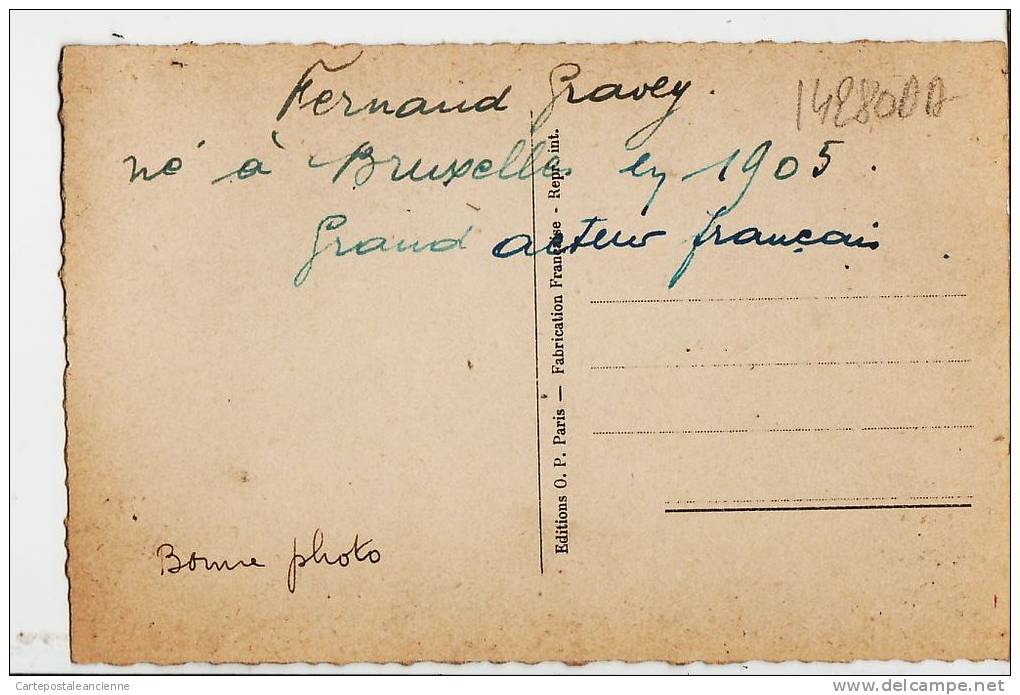 Fernand Gravey.
né à Bruxelles en 1905.
Grand acteur français.
Editions O. P. Paris — Fabrication Française - Repr. int.
Bonne photo
Cartepostaleancienne
http://www.delcampe.net